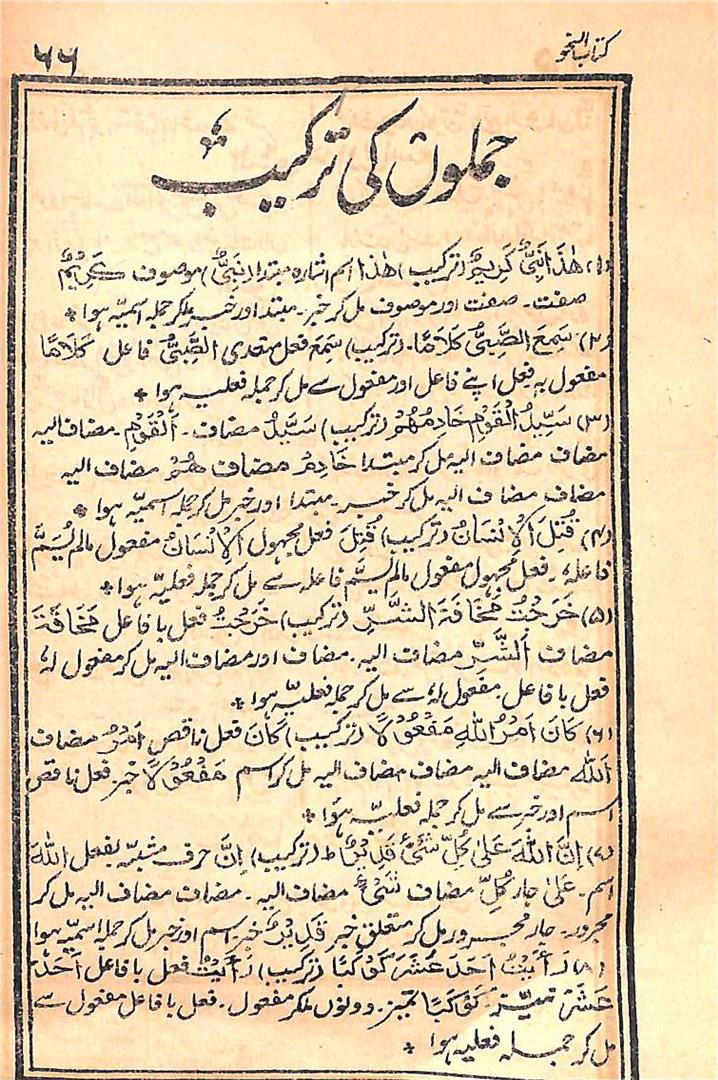 کتاب النحو
۶۶
جملوں کی ترکیب
(۱) هٰذَا نَبِیٌّ کَرِیْمٌ (ترکیب) هٰذا اسم اشارہ مبتدا، نَبِیٌّ موصوف کَرِیْمٌ
صفت۔ صفت اور موصوف مل کر خبر۔ مبتدا اور خبر ملکر جملہ اسمیّہ ہوا *
(۲) سَمِعَ الصَّبِیُّ کَلَامًا۔ (ترکیب) سَمِعَ فعل متعدی الصَّبِیُّ فاعل کَلَامًا
مفعول بہٖ فعل اپنے فاعل اور مفعول سے مل کر جملہ فعلیہ ہوا *
(۳) سَیِّدُ الْقَوْمِ خَادِمُهُمْ (ترکیب) سَیِّدُ مضاف۔ اَلْقَوْمِ مضاف الیہ
مضاف مضاف الیہ مل کر مبتدا خَادِمُ مضاف هُمْ مضاف الیہ
مضاف مضاف الیہ مل کر خبر۔ مبتدا اور خبر مل کر جملہ اسمیّہ ہوا *
(۴) قُتِلَ الْاِنْسَانُ (ترکیب) قُتِلَ فعل مجہول اَلْاِنْسَانُ مفعول مالم یُسَمَّ
فاعلہٗ۔ فعل مجہول مفعول مالم یُسَمَّ فاعلہ سے مل کر جملہ فعلیّہ ہوا *
(۵) خَرَجْتُ مَخَافَةَ الشَّرِّ (ترکیب) خَرَجْتُ فعل با فاعل مَخَافَةَ
مضاف اَلشَّرِّ مضاف الیہ۔ مضاف اور مضاف الیہ مل کر مفعول لہٗ
فعل با فاعل۔ مفعول لہٗ سے مل کر جملہ فعلیّہ ہوا *
(۶) کَانَ اَمْرُ اللّٰهِ مَفْعُوْلًا (ترکیب) کَانَ فعل ناقص اَمْرُ مضاف
اَللّٰه مضاف الیہ مضاف مضاف الیہ مل کر اسم مَفْعُوْلًا خبر فعل ناقص
اسم اور خبر سے مل کر جملہ فعلیّہ ہوا *
(۷) اِنَّ اللّٰهَ عَلٰی کُلِّ شَیْءٍ قَدِیْرٌ ط (ترکیب) اِنَّ حرف مشبّہ بفعل اللّٰهَ
اسم۔ عَلٰی جار کُلِّ مضاف شَیْءٍ مضاف الیہ۔ مضاف مضاف الیہ مل کر
مجرور۔ جار مجرور مل کر متعلق خبر قَدِیْرٌ خبر۔ اسم اور خبر مل کر جملہ اسمیّہ ہوا
(۸) رَأَیْتُ اَحَدَ عَشَرَ کَوْکَبًا (ترکیب) رَأَیْتُ فعل با فاعل اَحَدَ
عَشَرَ ممیّز کَوْکَبًا تمیز۔ دونوں ملکر مفعول۔ فعل با فاعل مفعول سے
مل کر جملہ فعلیہ ہوا *